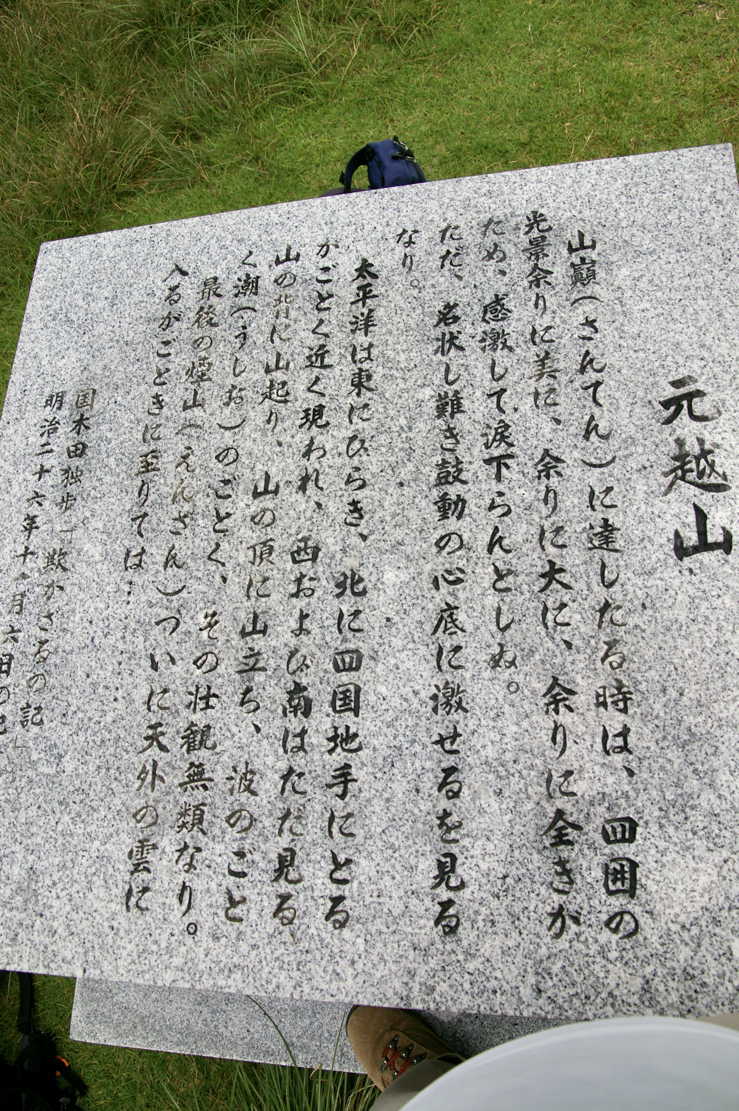 元越山
山巓(さんてん)に達したる時は、四囲の
光景余りに美に、余りに大に、余りに全きが
ため、感激して涙下らんとしぬ。
ただ、名状し難き鼓動の心底に激せるを見る
なり。
太平洋は東にひらき、北に四国地手にとる
がごとく近く現われ、西および南はただ見る、
山の背に山起り、山の頂に山立ち、波のごと
く潮(うしお)のごとく、その壮観無類なり。
最後の煙山(えんざん)ついに天外の雲に
入るがごときに至りては…
国木田独歩「欺かざるの記
明治二十六年十一月六日の記」